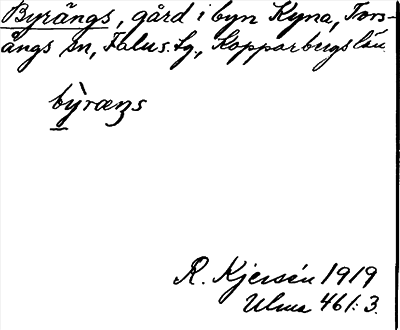 Byrängs, gård i byn Kyna, Tors-
ångs sn, Falu s. tg., Kopparbergs län.
by̆ræŋs
R. Kjersén 1919
Ulma 461:3.